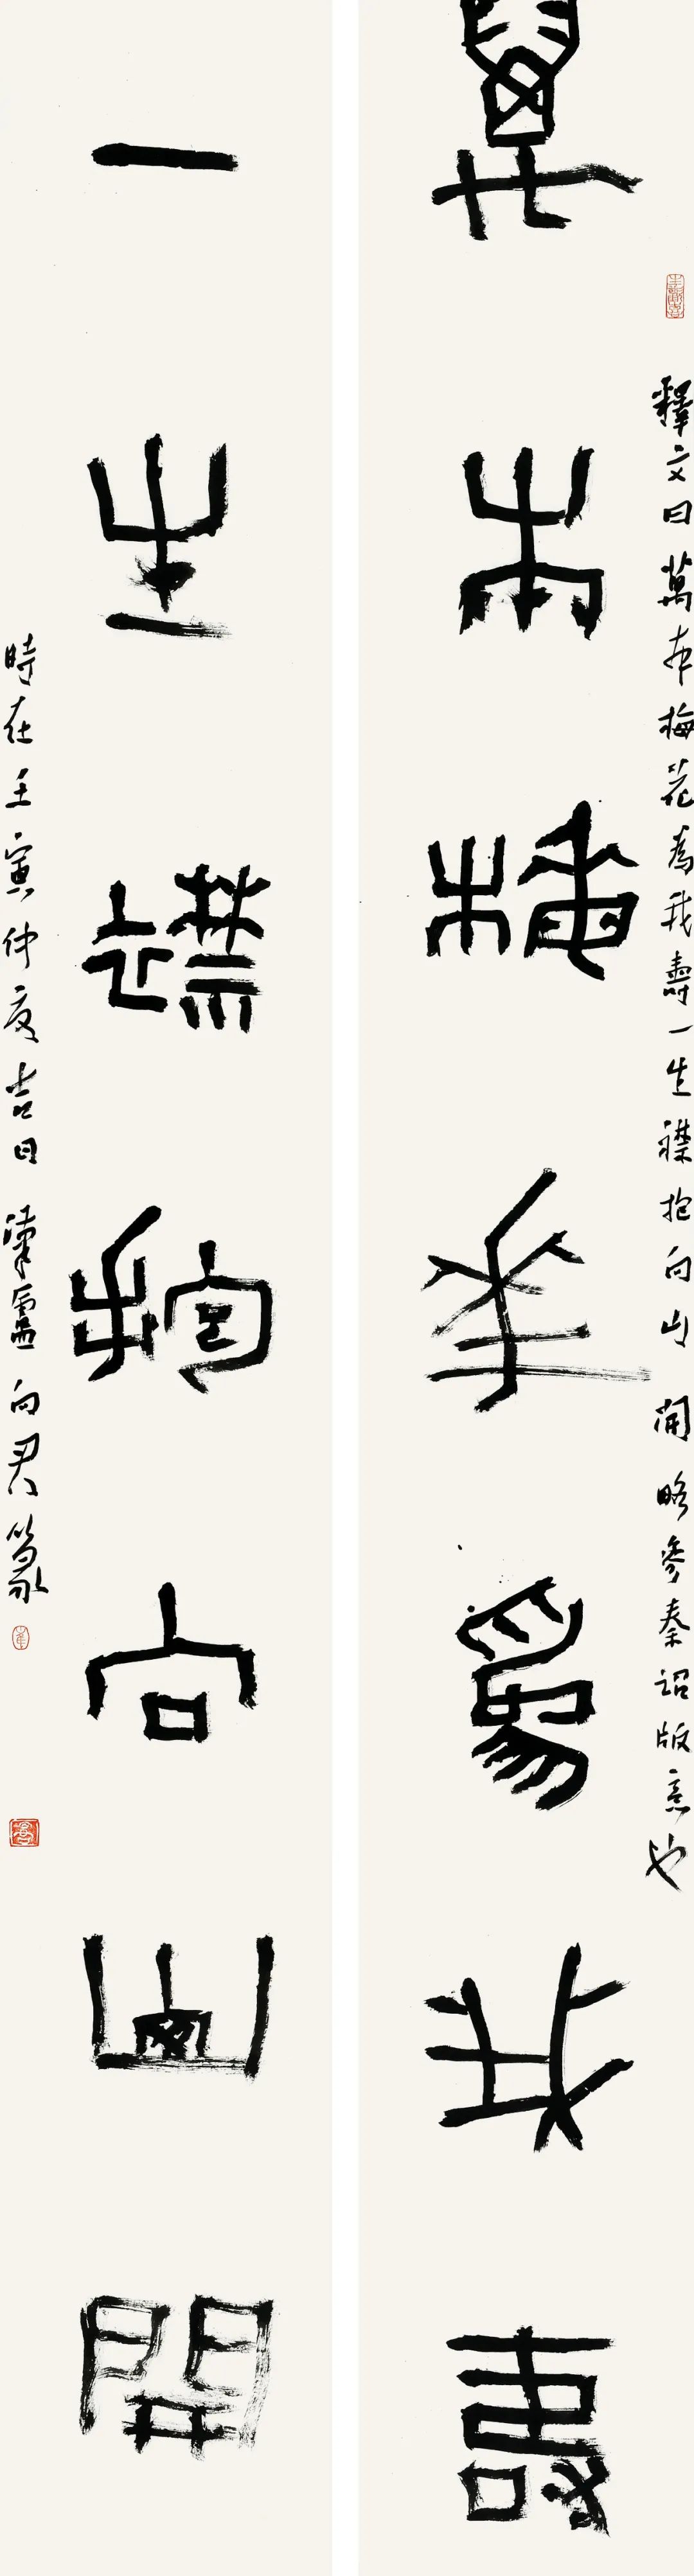 萬本梅花為我壽
釋文曰萬本梅花為我壽一生襟抱向山開略參秦詔版意也
一生襟抱向山開
時在壬寅仲夏吉日
向君篆